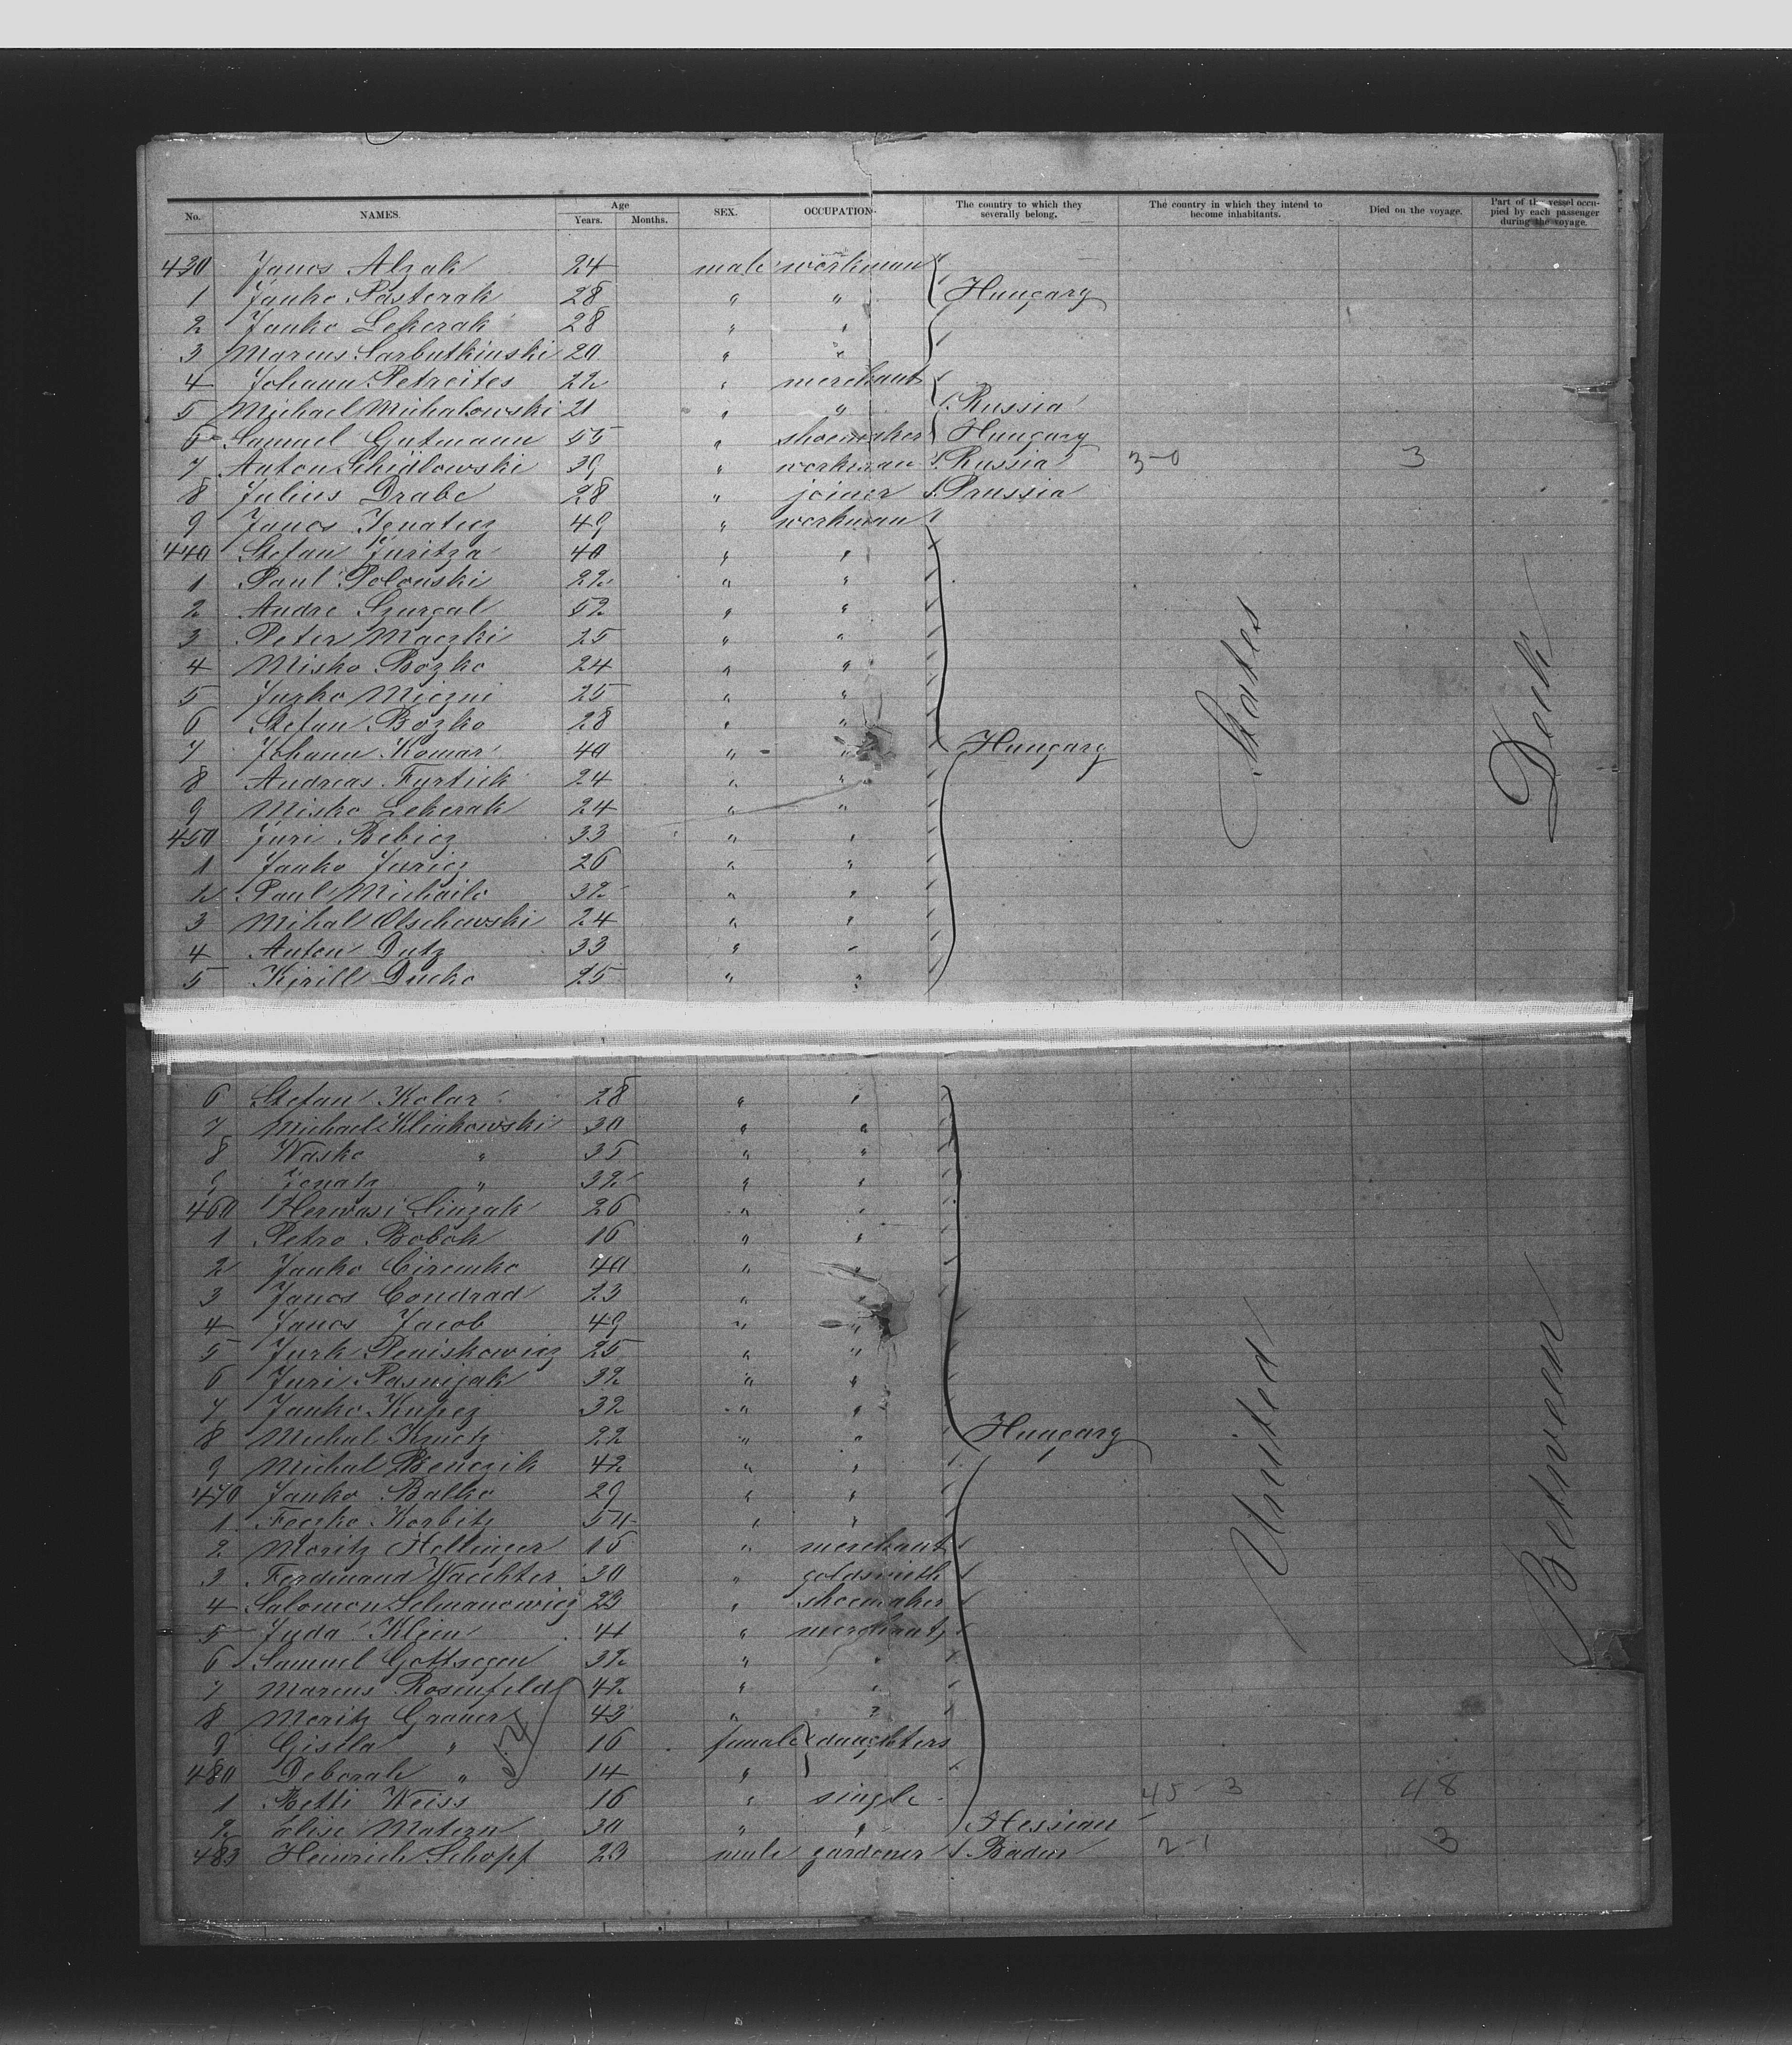 No. NAMES. Age Years. Months. SEX. OCCUPATION. The country to which they severally belong. The country in which they intend to become inhabitants. Died on the voyage. Part of the vessel occupied by each passenger during the voyage.
430 Janos Alzak 24 male workman
1 Janko Pasterak 28 " " Hungary
2 Janko Lekerak 28 " "
3 Marcus Sarbutkinski 20 " "
4 Johann Petreites 22 " merchant
5 Michael Michalowski 21 " " Russia
6 Samuel Gutmann 55 " shoemaker Hungary
7 Anton Schidlowski 39 " workman Russia 3-0 3
8 Julius Drabe 28 " joiner Prussia
9 Janos Ignaticz 49 " workman
440 Stefan Juritza 40 " "
1 Paul Polonski 22 " "
2 Andre Szurgal 52 " "
3 Peter Maczki 25 " "
4 Misko Bozko 24 " "
5 Jurko Miczni 25 " "
6 Stefan Bozko 28 " "
7 Johann Komar 40 " " Hungary
8 Andreas Furtick 24 " "
9 Misko Lekerak 24 " "
450 Juri Bebicz 33 " "
1 Janko Juricz 26 " "
2 Paul Michailo 32 " "
3 Mihal Olschewski 24 " "
4 Anton Dutz 33 " "
5 Kirill Ducko 25 " "
6 Stefan Kolar 28 " "
7 Michael Klinkowski 30 " "
8 Wasko " 35 " "
9 Ignatz " 32 " "
460 Herwasi Sinzak 26 " "
1 Petro Bobok 16 " "
2 Janko Ciremko 40 " "
3 Janos Condrad 23 " "
4 Janos Jacob 49 " "
5 Jurk Peniskowicz 25 " "
6 Juri Pasnijak 32 " "
7 Janko Kupez 32 " "
8 Michal Kructz 22 " " Hungary
9 Michal Benczik 42 " "
470 Janko Balko 29 " "
1 Feczko Korbitz " "
2 Moritz Hollinger 15 " merchant
3 Ferdinand Waechter 30 " goldsmith
4 Salomon Selmanowicz 23 " shoemaker
5 Juda Klein 41 " merchant
6 Samuel Gottsegen 32 " "
7 Marcus Rosenfeld 42 " "
8 Moritz Grauer 43 " "
9 Gisela " 16 female daughters
480 Deborah " 14 "
1 Betti Weiss 16 " single 45-3 48
2 Elise Matern 30 " " Hessian
483 Heinrich Schopf 23 male gardener Baden 2-1 3
United States
Between Deck